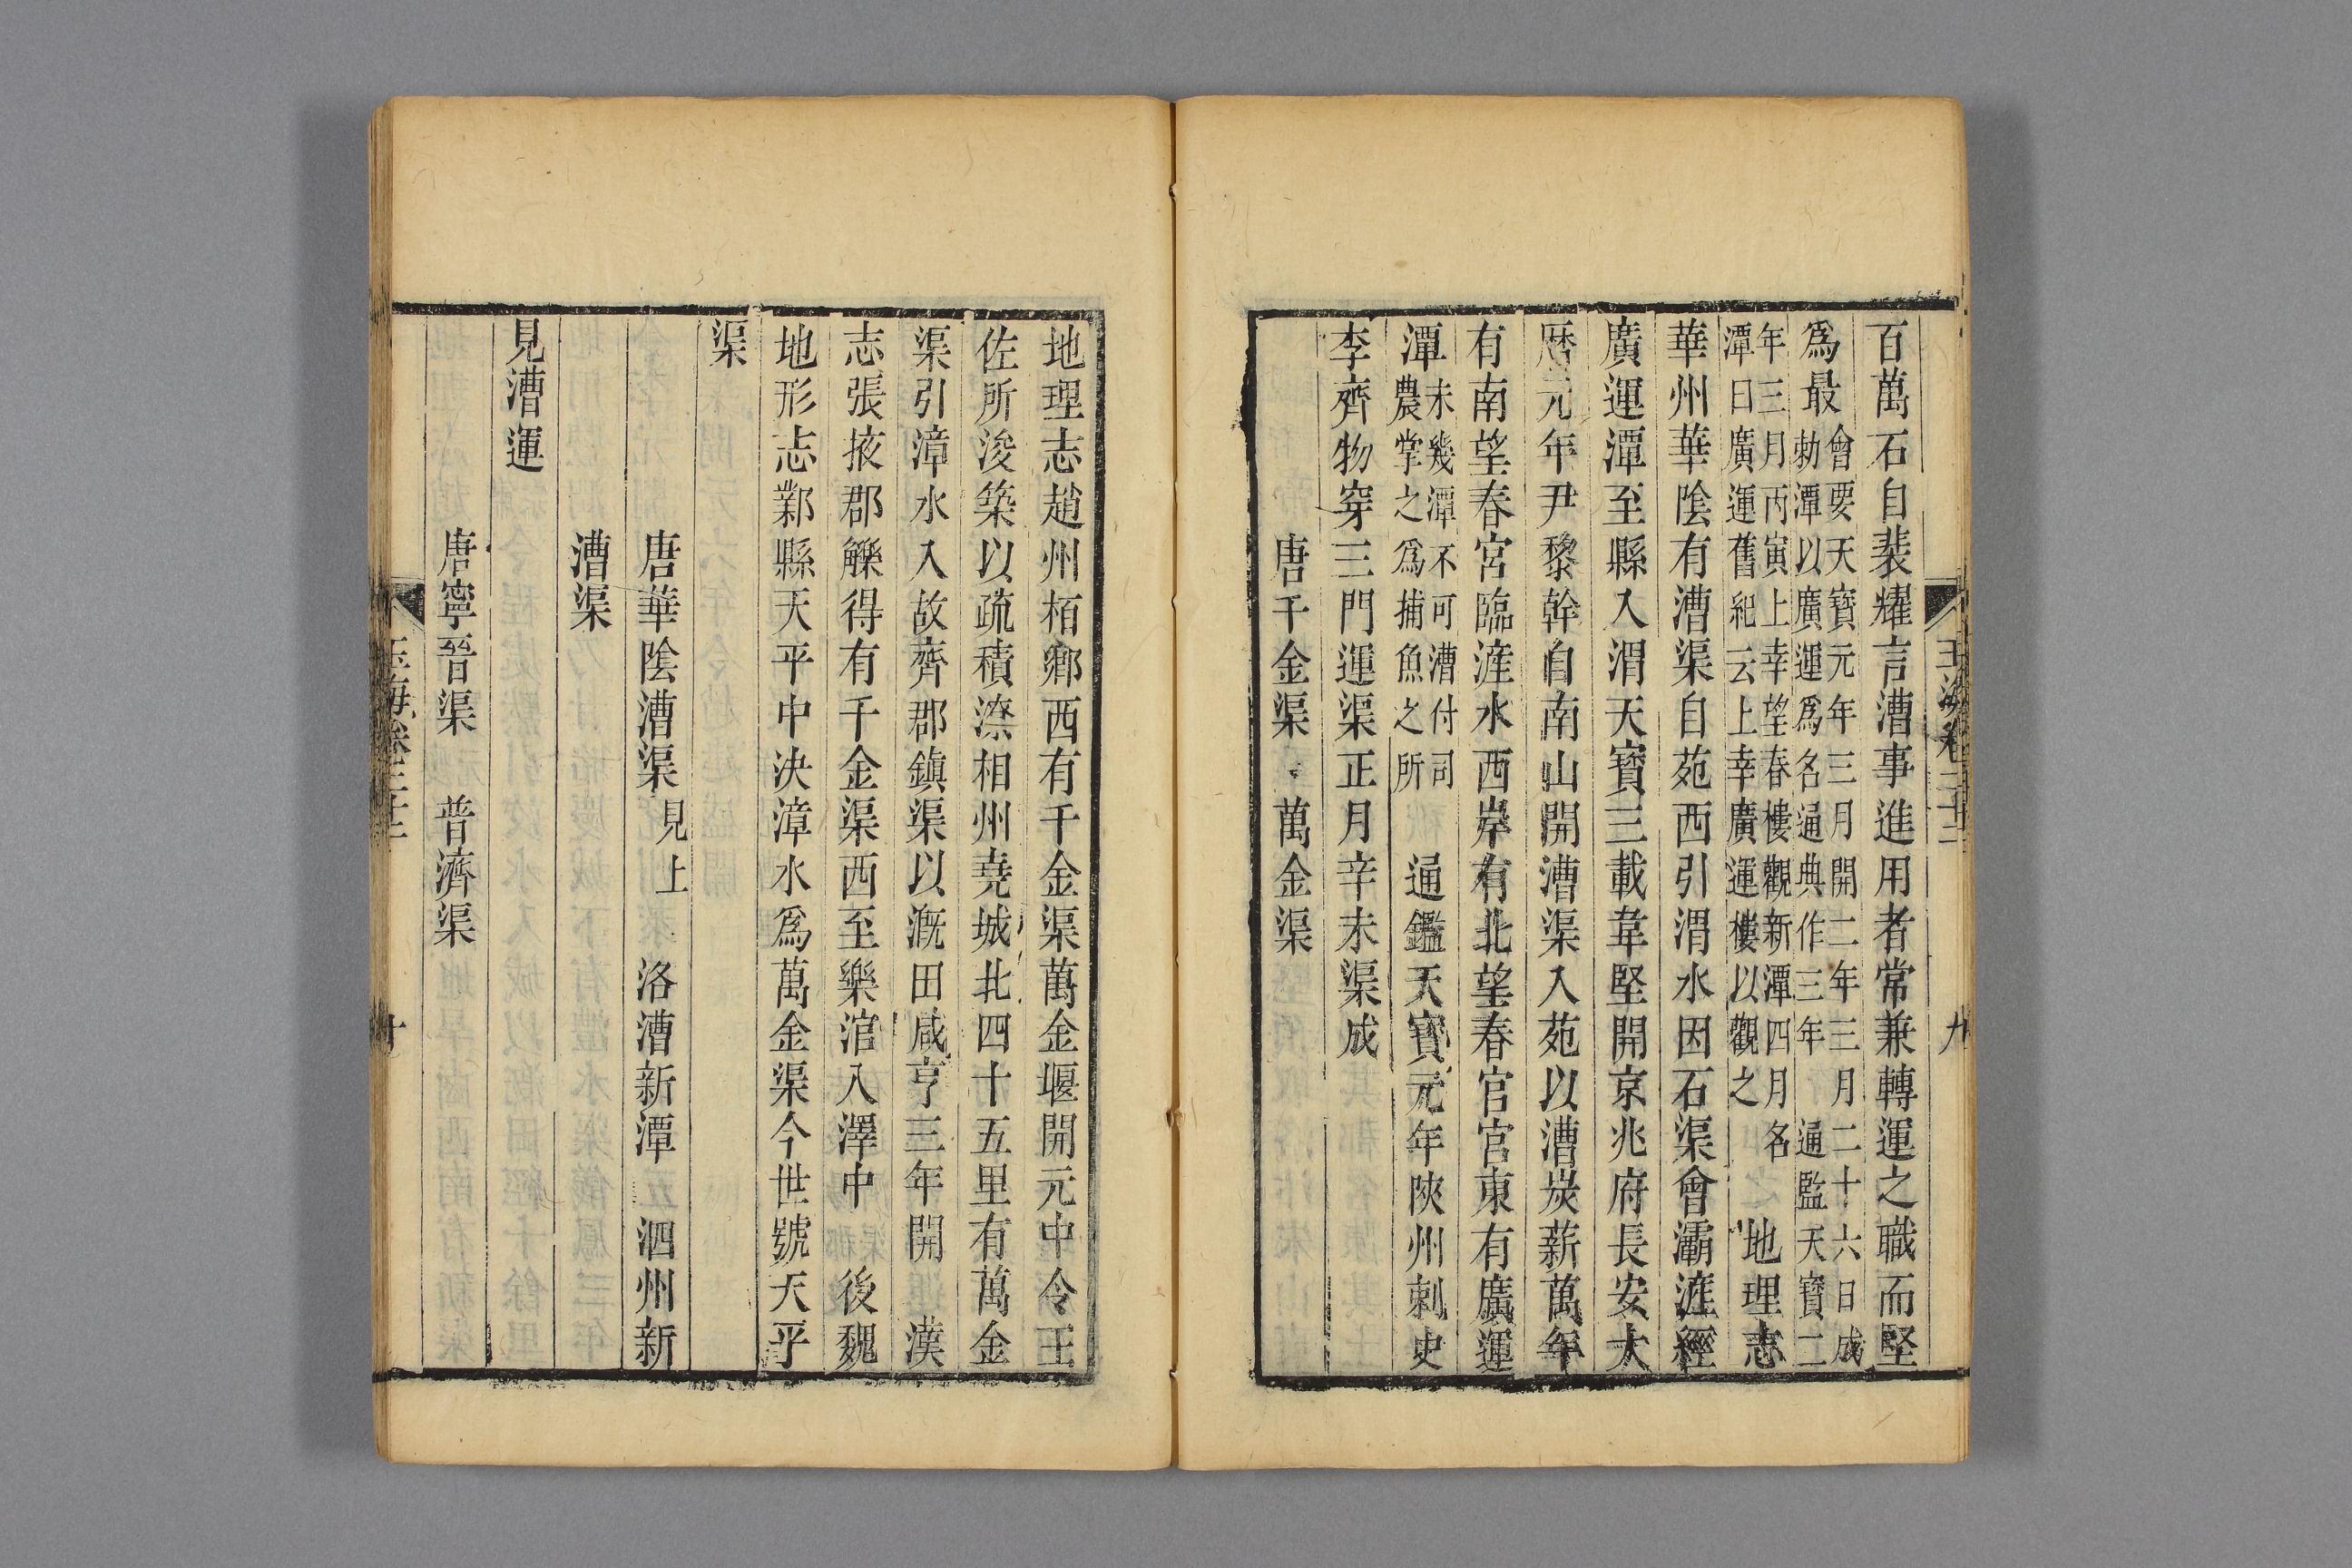 玉海卷二十二
九
百萬石自裴耀言漕事進用者常兼轉運之職而堅
爲最會要天寶元年三月開二年三月二十六日成勅潭以廣運爲名通典作三年通監天寶二
年三月丙寅上幸望春樓觀新潭四月名潭曰廣運舊紀云上幸廣運樓以觀之地理志
華州華陰有漕渠自苑西引渭水因石渠會灞滻經
廣運潭至縣入渭天寶三載韋堅開京兆府長安大
曆元年尹黎幹自南山開漕渠入苑以漕炭薪萬年
有南望春宮臨滻水西岸有北望春宮宮東有廣運
潭未幾潭不可漕付司農掌之爲捕魚之所通鑑天寶元年陝州刺史
李齊物穿三門運渠正月辛未渠成
唐千金渠 萬金渠
地理志趙州栢鄉西有千金渠萬金堰開元中令王
佐所浚築以疏積潦相州堯城北四十五里有萬金
渠引漳水入故齊郡鎮渠以溉田咸亨三年開 漢
志張掖郡觻得有千金渠西至樂涫入澤中 後魏
地形志鄴縣天平中決漳水爲萬金渠今世號天平
渠
唐華陰漕渠見上 洛漕新潭 泗州新
漕渠
見漕運
唐寧晉渠 普濟渠
玉海卷二十二
十